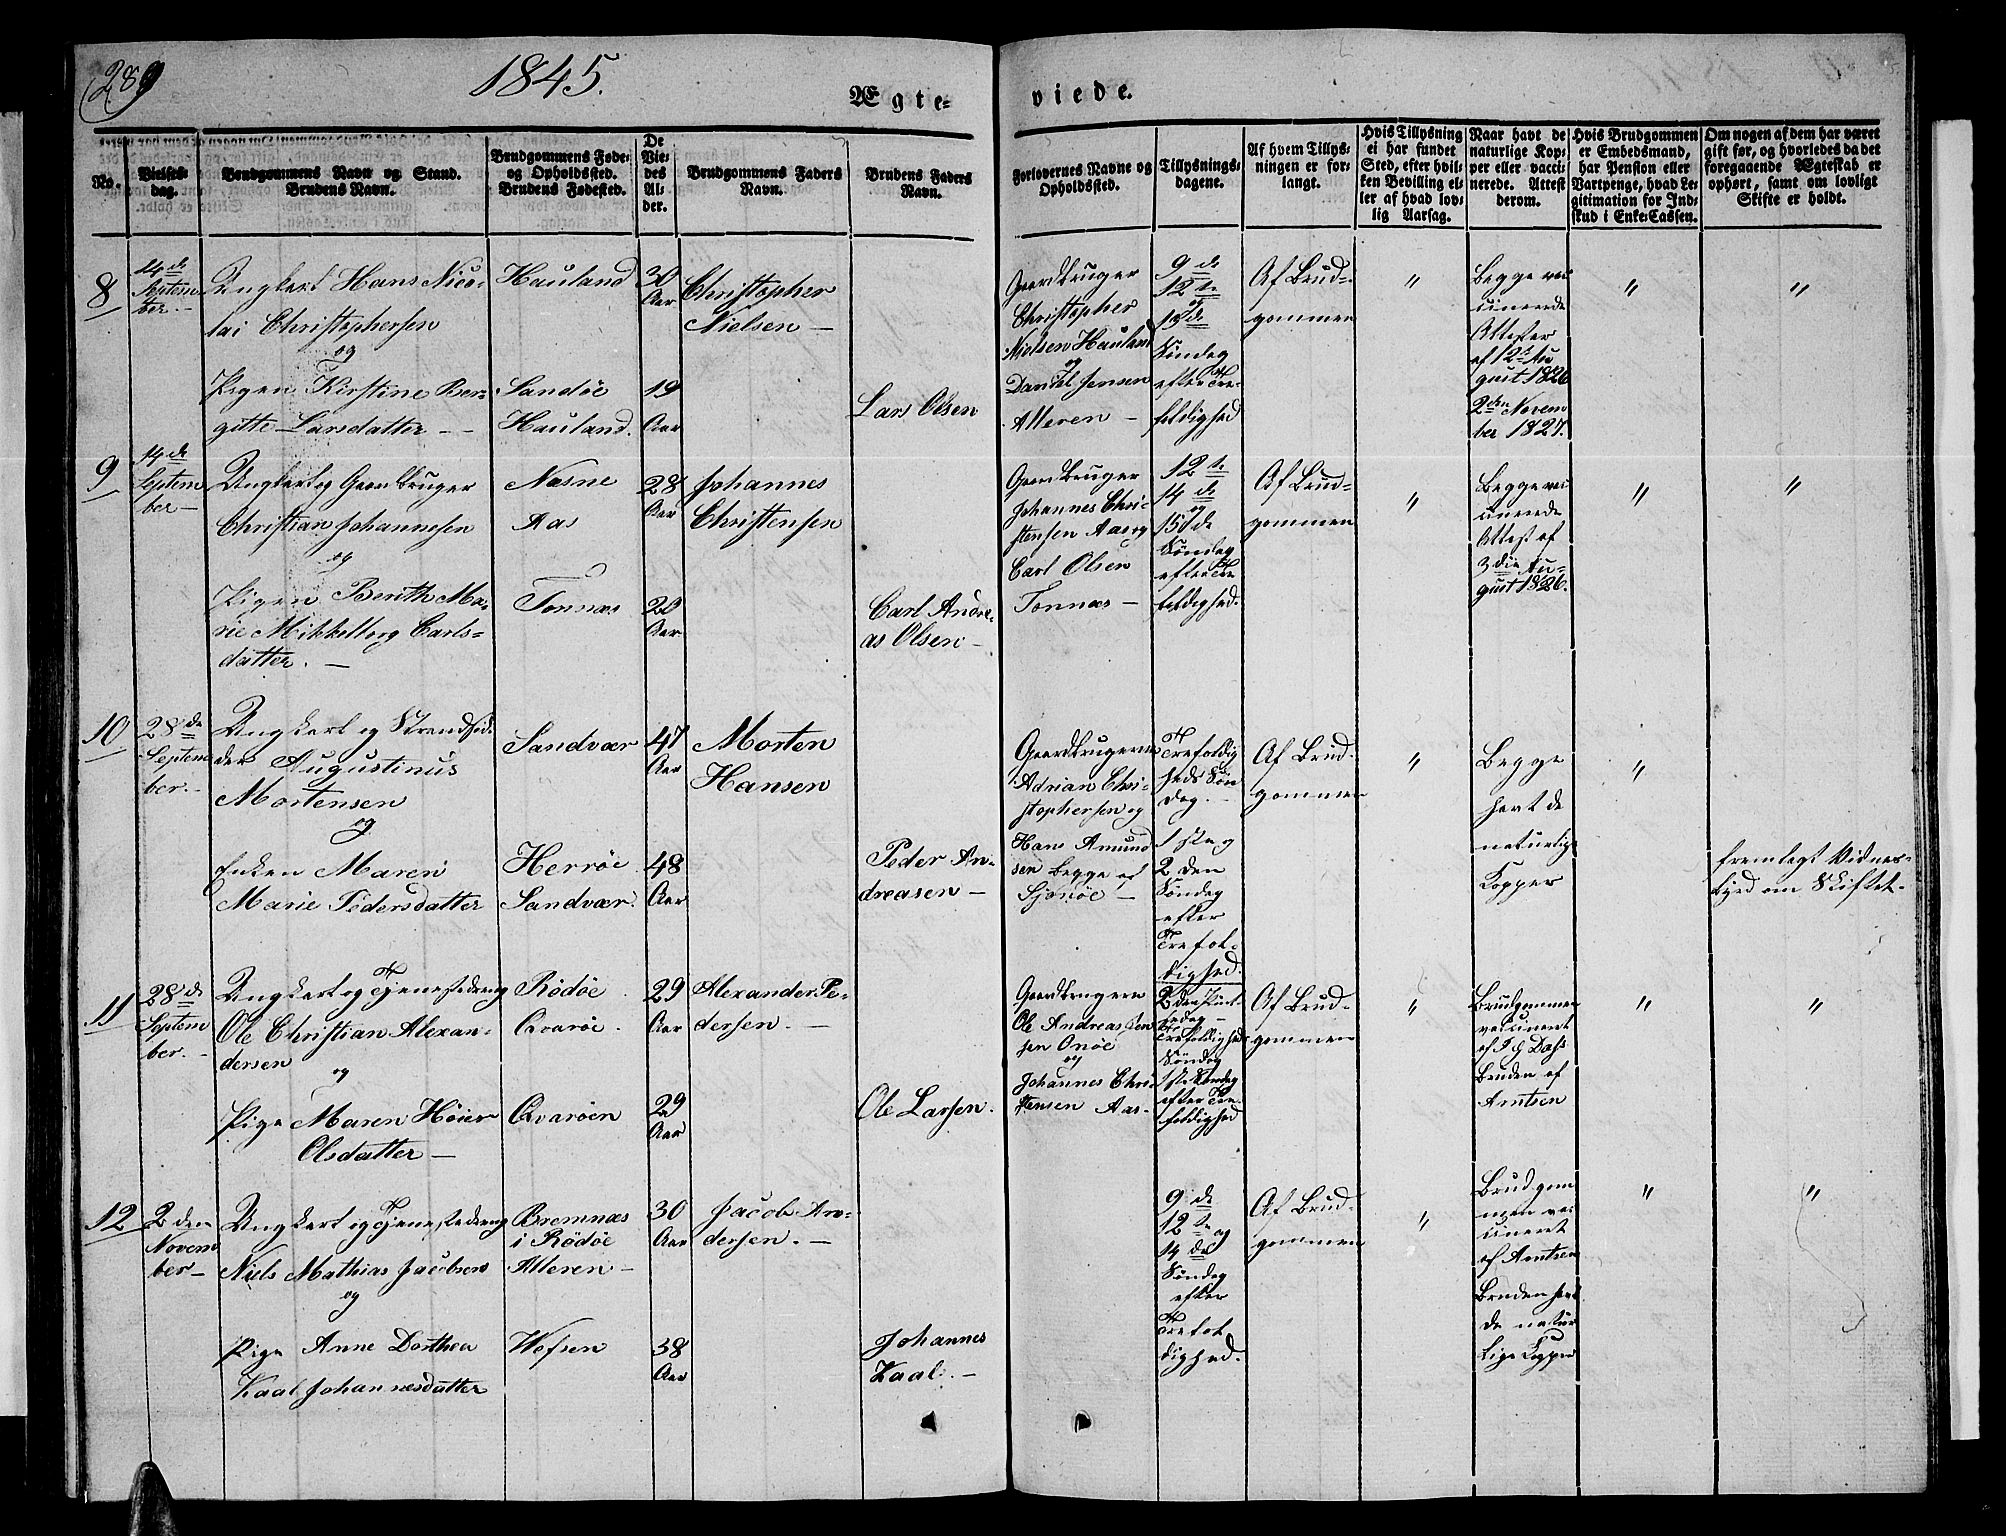 289
1845.
Ægte-
viede.
No.
Vielses-
dag.
Brudgommens Navn og Stand.
Brudens Navn.
Brudgommens Føde-
og Opholdssted.
Brudens Fødested.
De
Vie-
des
Al-
der.
Brudgommens Faders
Navn.
Brudens Faders
Navn.
Forlovernes Navne og
Opholdssted.
Tillysnings-
dagene.
Af hvem Tillys-
ningen er for-
langt.
Hvis Tillysning
ei har fundet
Sted, efter hvil-
ken Bevilling el-
ler af hvad lov-
lig Aarsag.
Naar havt de
naturlige Kop-
per eller vacci-
nerede. Attest
derom.
Hvis Brudgommen
er Embedsmand,
har Pension eller
Vartpenge, hvad Le-
gitimation for Ind-
skud i Enke-Cassen.
Om nogen af dem har været
gift før, og hvorledes da det
foregaaende Ægteskab er
ophørt, samt om lovligt
Skifte er holdt.
8
14de
Septem
ber.-
Ungkarl Hans Nico-
lai Christophersen
og
Pigen Kirstine Ber-
gitte Larsdatter -
Hauland
Sandöe
Hauland.
30
Aar
19
Aar
Christopher
Nielsen -
Lars Olsen
Gaardbruger
Christopher
Nielsen Hauland
og
Daniel Jensen
Alteren -
9de
12te
og
13de
Søndag
efter Tre-
foldighed
Af Brud-
gommen
"
Begge vac
cinerede
Attester
af 12te Au
gust 1826
2den Novem
ber 1827.
"
"
9
14de
Septem
ber -
Ungkarl og Gaardbruger
Christian Johannesen
og
Pigen Berith Ma-
rie Mikkelborg Carls-
datter. -
Næsne
Aas
Tonnæs
28
Aar
20
Aar
Johannes
Christensen
Carl Andre-
as Olsen -
Gaardbruger
Johannes Chri-
stensen Aas og
Carl Olsen
Tonnæs -
12te
14de
og
15de
Søndag
efter Tre
foldighed.
Af Brud-
gommen
"
Begge vac
cinerede
Attest af
3die Au-
gust 1826.
"
"
10
28de
Septem
ber.-
Ungkarl og Strandsid-
der Augustinus
Mortensen
og
Enken Maren
Marie Pedersdatter
Sandvær
Herröe
Sandvær.
47
Aar
48
Aar
Morten
Hansen
Peder An-
dreasen -
Gaardbrugerne
Adrian Chri-
stophersen og
Hans Amund
sen begge af
Sjonöe -
Trefoldig
heds Søn
dag. -
1ste og
2den
Søndag
efter
Trefol-
dighed.
Af Brud-
gommen
"
Begge
havt de
naturlige
Kopper
"
fremlagt Vidnes-
byrd om Skiftet.-
11
28de
Septem
ber.-
Ungkarl og Tjenestedreng
Ole Christian Alexan-
dersen
og
Pige Maren Höier
Olsdatter -
Rödöe
Qvaröe.
Qvaröen
29
Aar
29
Aar
Alexander Pe-
dersen. -
Ole Larsen.
Gaardbrugerne
Ole Andreas Jen
sen Onöe
og
Johannes Chri-
stensen Aas-
2den Pint
sedag -
Trefoldigheds
Søndag
1ste Søndag
efter Tre-
foldighed
Af Brud-
gommen
"
Brudgommen
vaccineret
af
Bruden af
Arntsen
"
"
12
2den
Novem
ber -
Ungkarl og Tjenestedreng
Niels Mathias Jacobsen
og
Pige Anne Dorthea
Kaal Johannesdatter
Bremnæs
i Rödöe
Alteren -
Wefsen
30
Aar
38
Aar
Jacob An-
dersen. -
Johannes
Kaal. -
9de
12te og
14de
Søndag
efter
Trefol
dighed.
Af Brud-
gommen
"
Brudgom
men vac
cineret
af Arntsen
Bruden havt
de natur
lige Kopper
"
"